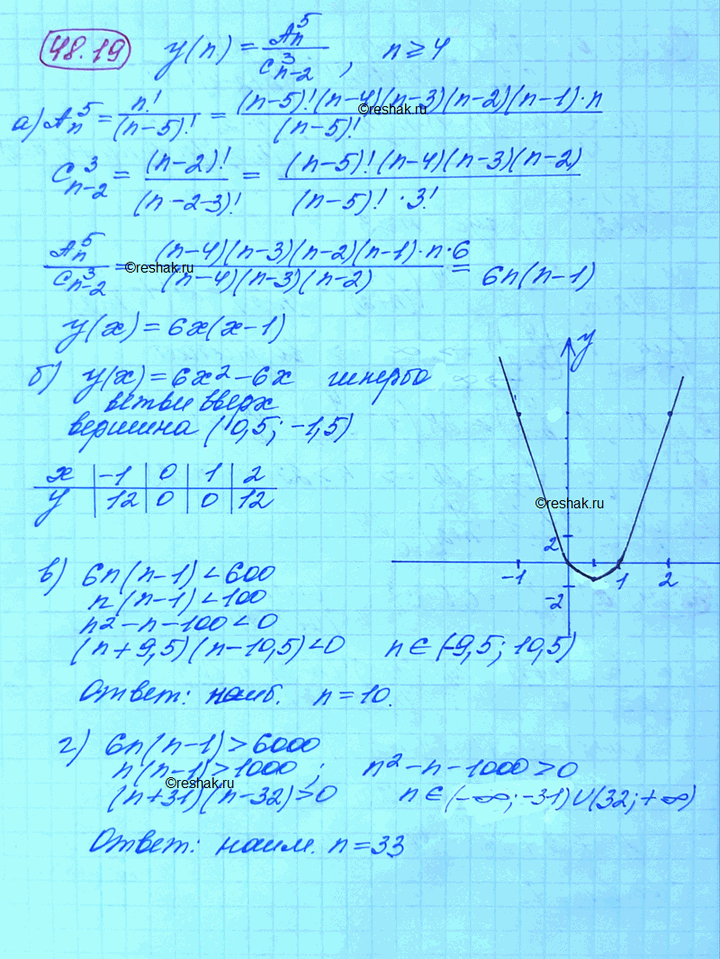 48.19 y(n) = A_n^5 / C_{n-2}^3 , n ≥ 4
а) A_n^5 = n! / (n-5)! = (n-5)!(n-4)(n-3)(n-2)(n-1)·n / (n-5)!
©reshak.ru
C_{n-2}^3 = (n-2)! / (n-2-3)! = (n-5)!(n-4)(n-3)(n-2) / (n-5)!·3!
A_n^5 / C_{n-2}^3 = (n-4)(n-3)(n-2)(n-1)·n·6 / (n-4)(n-3)(n-2) = 6n(n-1)
©reshak.ru
y(x) = 6x(x-1)
б) y(x) = 6x² - 6x
ветви вверх
вершина (0,5; -1,5)
x | -1 | 0 | 1 | 2
y | 12 | 0 | 0 | 12
y
©reshak.ru
2
-1 1 2
-2
в) 6n(n-1) < 600
n(n-1) < 100
n² - n - 100 < 0
(n+9,5)(n-10,5) < 0 n ∈ (-9,5; 10,5)
Ответ: наиб. n = 10.
г) 6n(n-1) > 6000
n(n-1) > 1000 ; n² - n - 1000 > 0
©reshak.ru
(n+31)(n-32) > 0 n ∈ (-∞; -31) ∪ (32; +∞)
Ответ: наим. n = 33
©reshak.ru